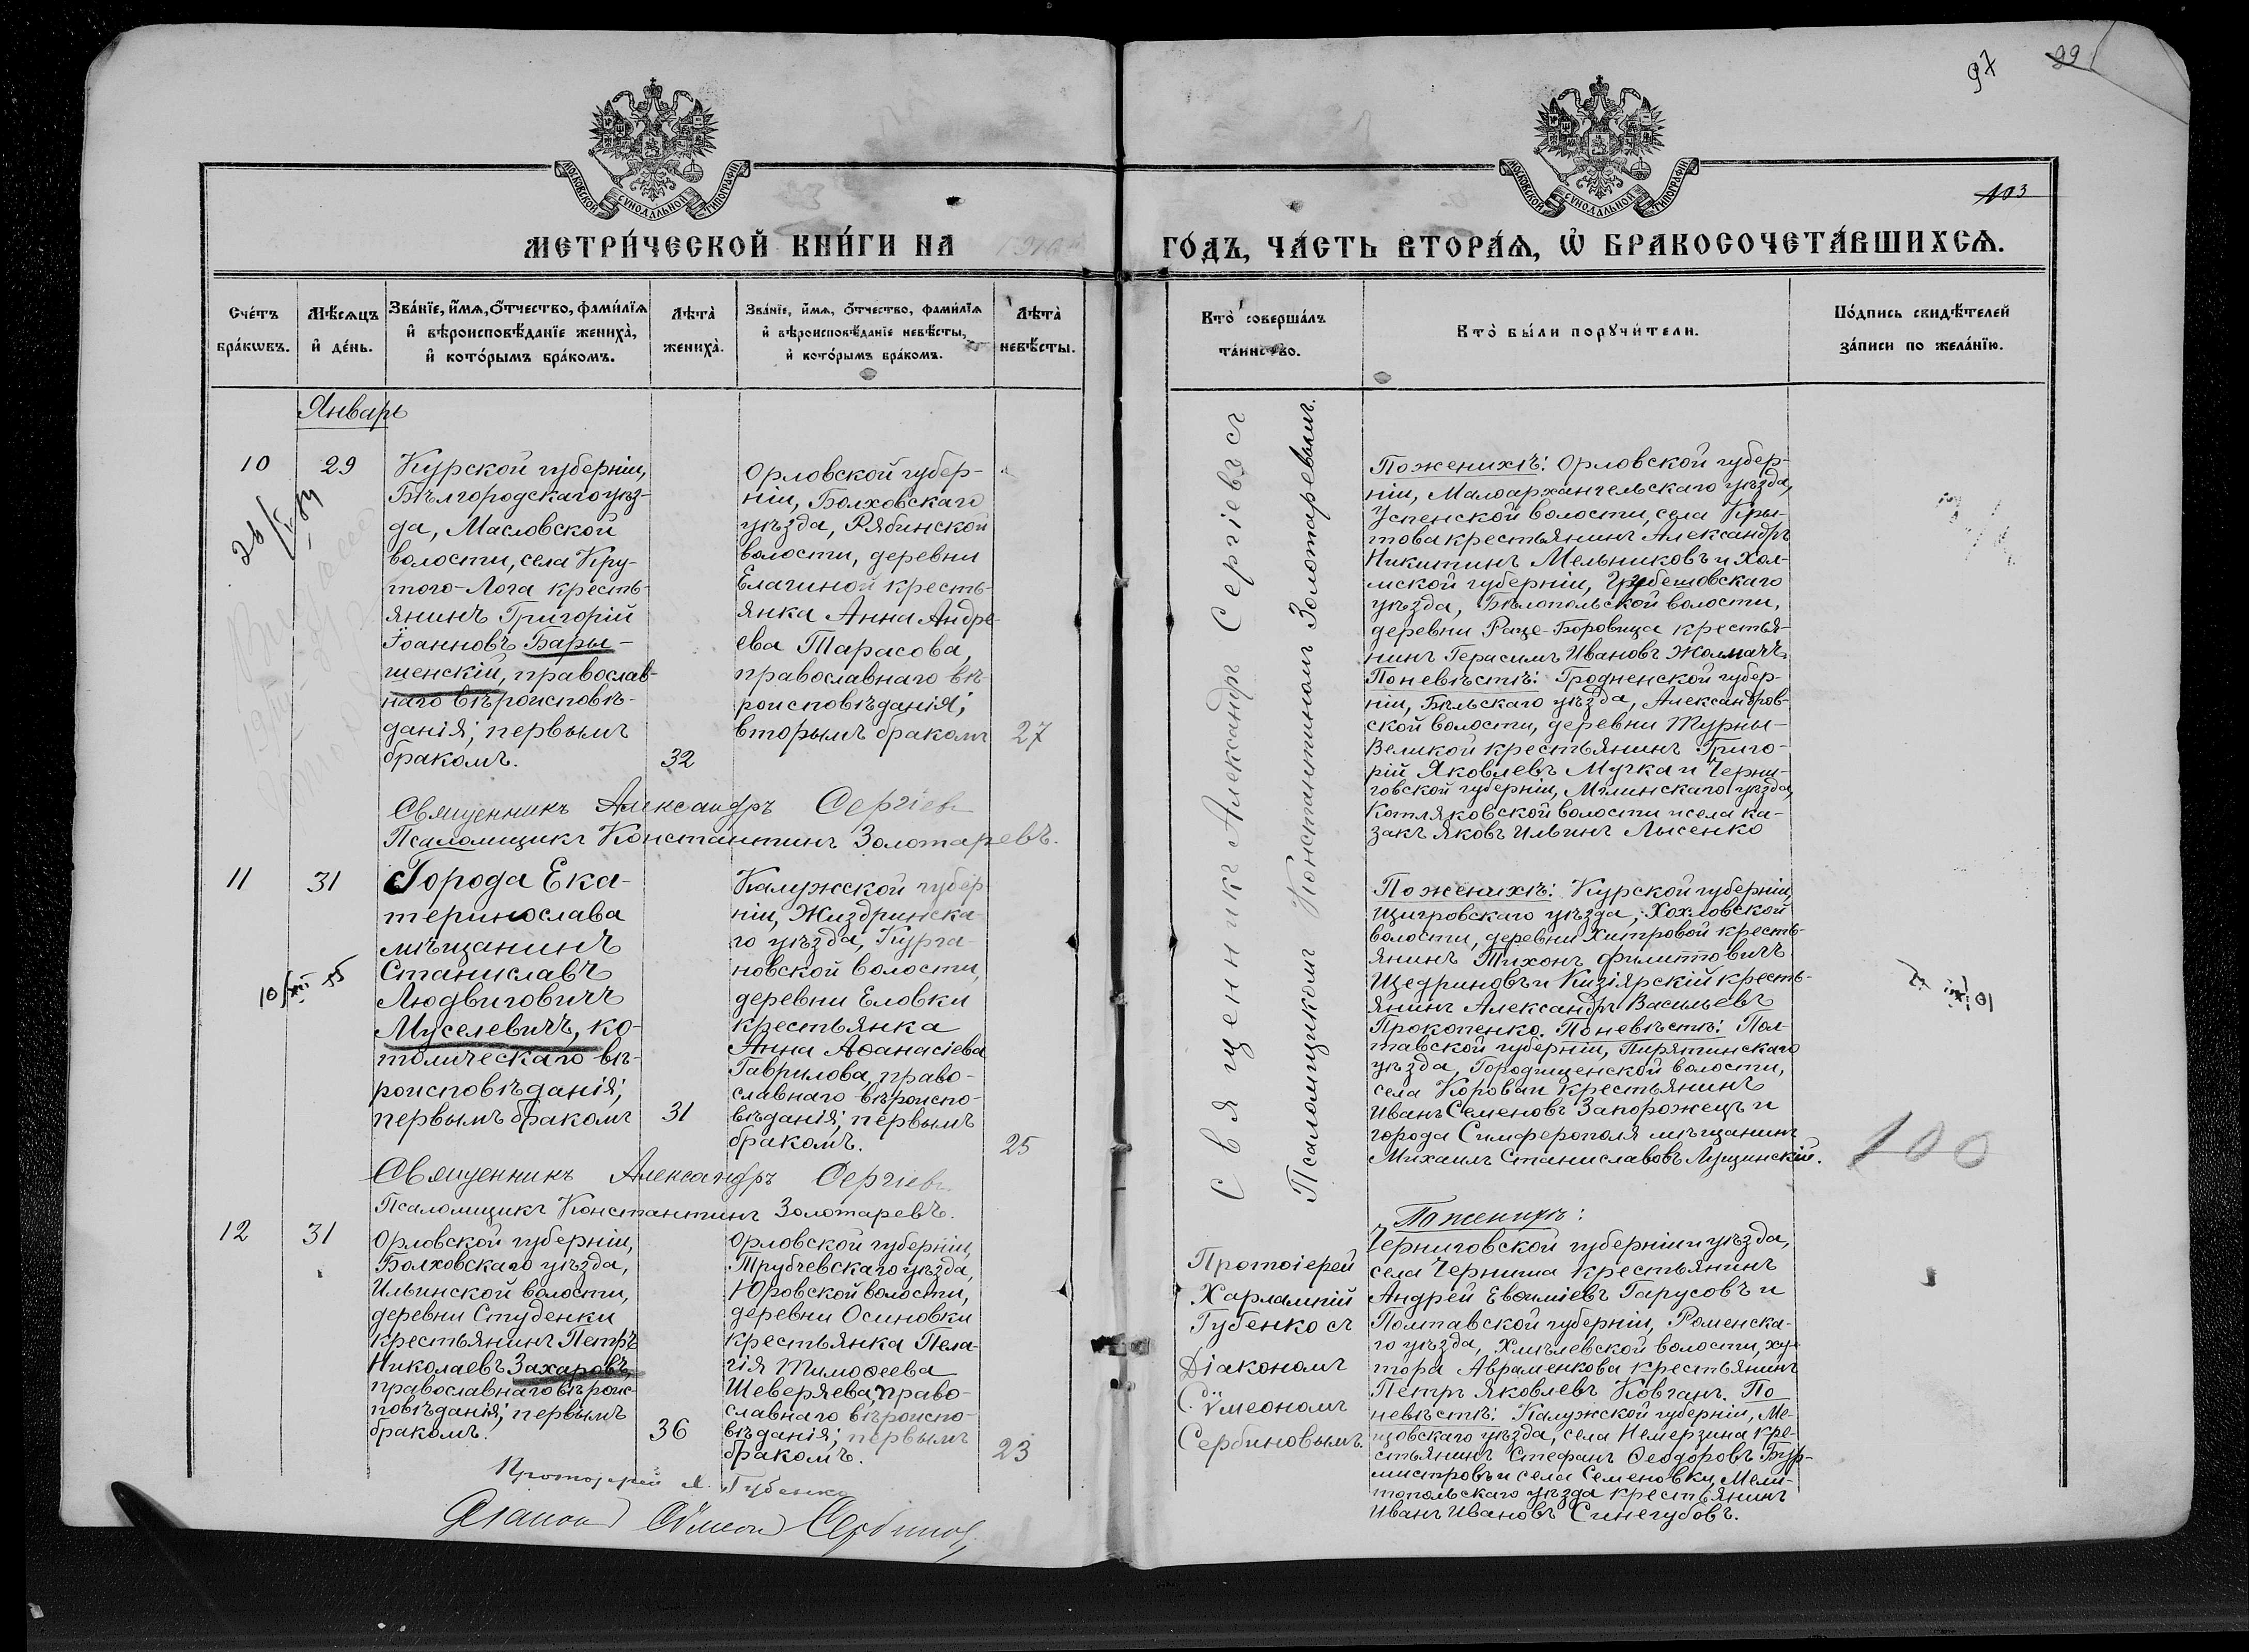 97
99
МОСКОВСКОЙ СѴНОДАЛЬНОЙ ТИПОГРАФІИ
МОСКОВСКОЙ СѴНОДАЛЬНОЙ ТИПОГРАФІИ
103
МЕТРИ́ЧЕСКОЙ КНИ́ГИ НА
ГО́ДЪ, ЧА́СТЬ ВТОРА́Ѧ, Ѡ҆ БРАКОСОЧЕТА́ВШИХСѦ.
Сче́тъ
бра́кѡвъ.
Мѣ́сѧцъ
и҆ де́нь.
Зва́нїе, и҆́мѧ, ѻ҆́тчество, фами́лїѧ
и҆ вѣроисповѣ́данїе жениха̀,
и҆ кото́рымъ бра́комъ.
Лѣ́та̀
жениха̀.
Зва́нїе, и҆́мѧ, ѻ҆́тчество, фами́лїѧ
и҆ вѣроисповѣ́данїе невѣ́сты,
и҆ кото́рымъ бра́комъ.
Лѣ́та̀
невѣ́сты.
Кто̀ соверша́лъ
та́инство.
Кто̀ бы́ли порꙋчи́тели.
По́дпись свидѣ́телей
за́писи по жела́нїю.
Январь
10
29
Курской губерніи,
Бѣлгородскаго уѣз-
да, Масловской
волости, села Кру-
того-Лога кресть-
янинъ Григорій
Іоанновъ Бары-
шенскій, православ-
наго вѣроисповѣ-
данія; первымъ
бракомъ.
32
Орловской губер-
ніи, Болховскаго
уѣзда, Рябинской
волости, деревни
Елагиной кресть-
янка Анна Андре-
ева Тарасова,
православнаго вѣ-
роисповѣданія;
вторымъ бракомъ
27
Священникъ Александръ Сергіевъ
Псаломщикъ Константинъ Золотаревъ.
Священникъ Александръ Сергіевъ съ
Псаломщикомъ Константиномъ Золотаревымъ.
По женихѣ: Орловской губер-
ніи, Малоархангельскаго уѣзда,
Успенской волости, села Кры-
това крестьянинъ Александръ
Никитинъ Мельниковъ и Хол-
мской губерніи, Грубешовскаго
уѣзда, Бѣлопольской волости,
деревни Раце-Боровица крестья-
нинъ Герасимъ Ивановъ Жолмачъ.
По невѣстѣ: Гродненской губер-
ніи, Бѣльскаго уѣзда, Александров-
ской волости, деревни Турны-
Великой крестьянинъ Григо-
рій Яковлевъ Мучка и Черни-
говской губерніи, Мглинскаго уѣзда,
Котляковской волости и села ка-
закъ Яковъ Ильинъ Лысенко
11
31
Города Ека-
теринослава
мѣщанинъ
Станиславъ
Людвиговичъ
Муселевичъ, ко-
толическаго вѣ-
роисповѣданія;
первымъ бракомъ
31
Калужской губер
ніи, Жиздринска-
го уѣзда, Курга-
новской волости,
деревни Еловки
крестьянка
Анна Аѳанасіева
Гаврилова, право-
славнаго вѣроиспо-
вѣданія; первымъ
бракомъ.
25
Священникъ Александръ Сергіевъ
Псаломщикъ Константинъ Золотаревъ.
По женихѣ: Курской губерніи,
Щигровскаго уѣзда, Хохловской
волости, деревни Хитровой кресть-
янинъ Тихонъ Филипповичъ
Щедриновъ и Кизіярскій кресть-
янинъ Александръ Васильевъ
Прокопенко. По невѣстѣ: Пол-
тавской губерніи, Пирятинскаго
уѣзда, Городищенской волости,
села Коровай крестьянинъ
Иванъ Семеновъ Запорожецъ и
города Симферополя мѣщанинъ
Михаилъ Станиславовъ Лущинскій.
100
12
31
Орловской губерніи,
Болховскаго уѣзда,
Ильинской волости,
деревни Студенки
крестьянинъ Петръ
Николаевъ Захаровъ,
православнаго вѣроис-
повѣданія; первымъ
бракомъ.
36
Орловской губерніи,
Трубчевскаго уѣзда,
Юровской волости,
деревни Осиновки
крестьянка Пела-
гія Тимоѳеева
Шеверяева, право-
славнаго вѣроиспо-
вѣданія; первымъ
бракомъ.
23
Протоіерей Х. Губенко
Діаконъ Сѵмеонъ Сербиновъ
Протоіерей
Харлампій
Губенко съ
Діакономъ
Сѵмеономъ
Сербиновымъ.
По женихѣ:
Черниговской губерніи и уѣзда,
села Черниша крестьянинъ
Андрей Евѳиміевъ Гарусовъ и
Полтавской губерніи, Роменска-
го уѣзда, Хмѣлевской волости, ху-
тора Авраменкова крестьянинъ
Петръ Яковлевъ Ковганъ. По
невѣстѣ: Калужской губерніи, Ме-
щовскаго уѣзда, села Немерзина кре-
стьянинъ Стефанъ Ѳеодоровъ Бур-
мистровъ и села Семеновки, Мели-
топольскаго уѣзда крестьянинъ
Иванъ Ивановъ Синегубовъ.